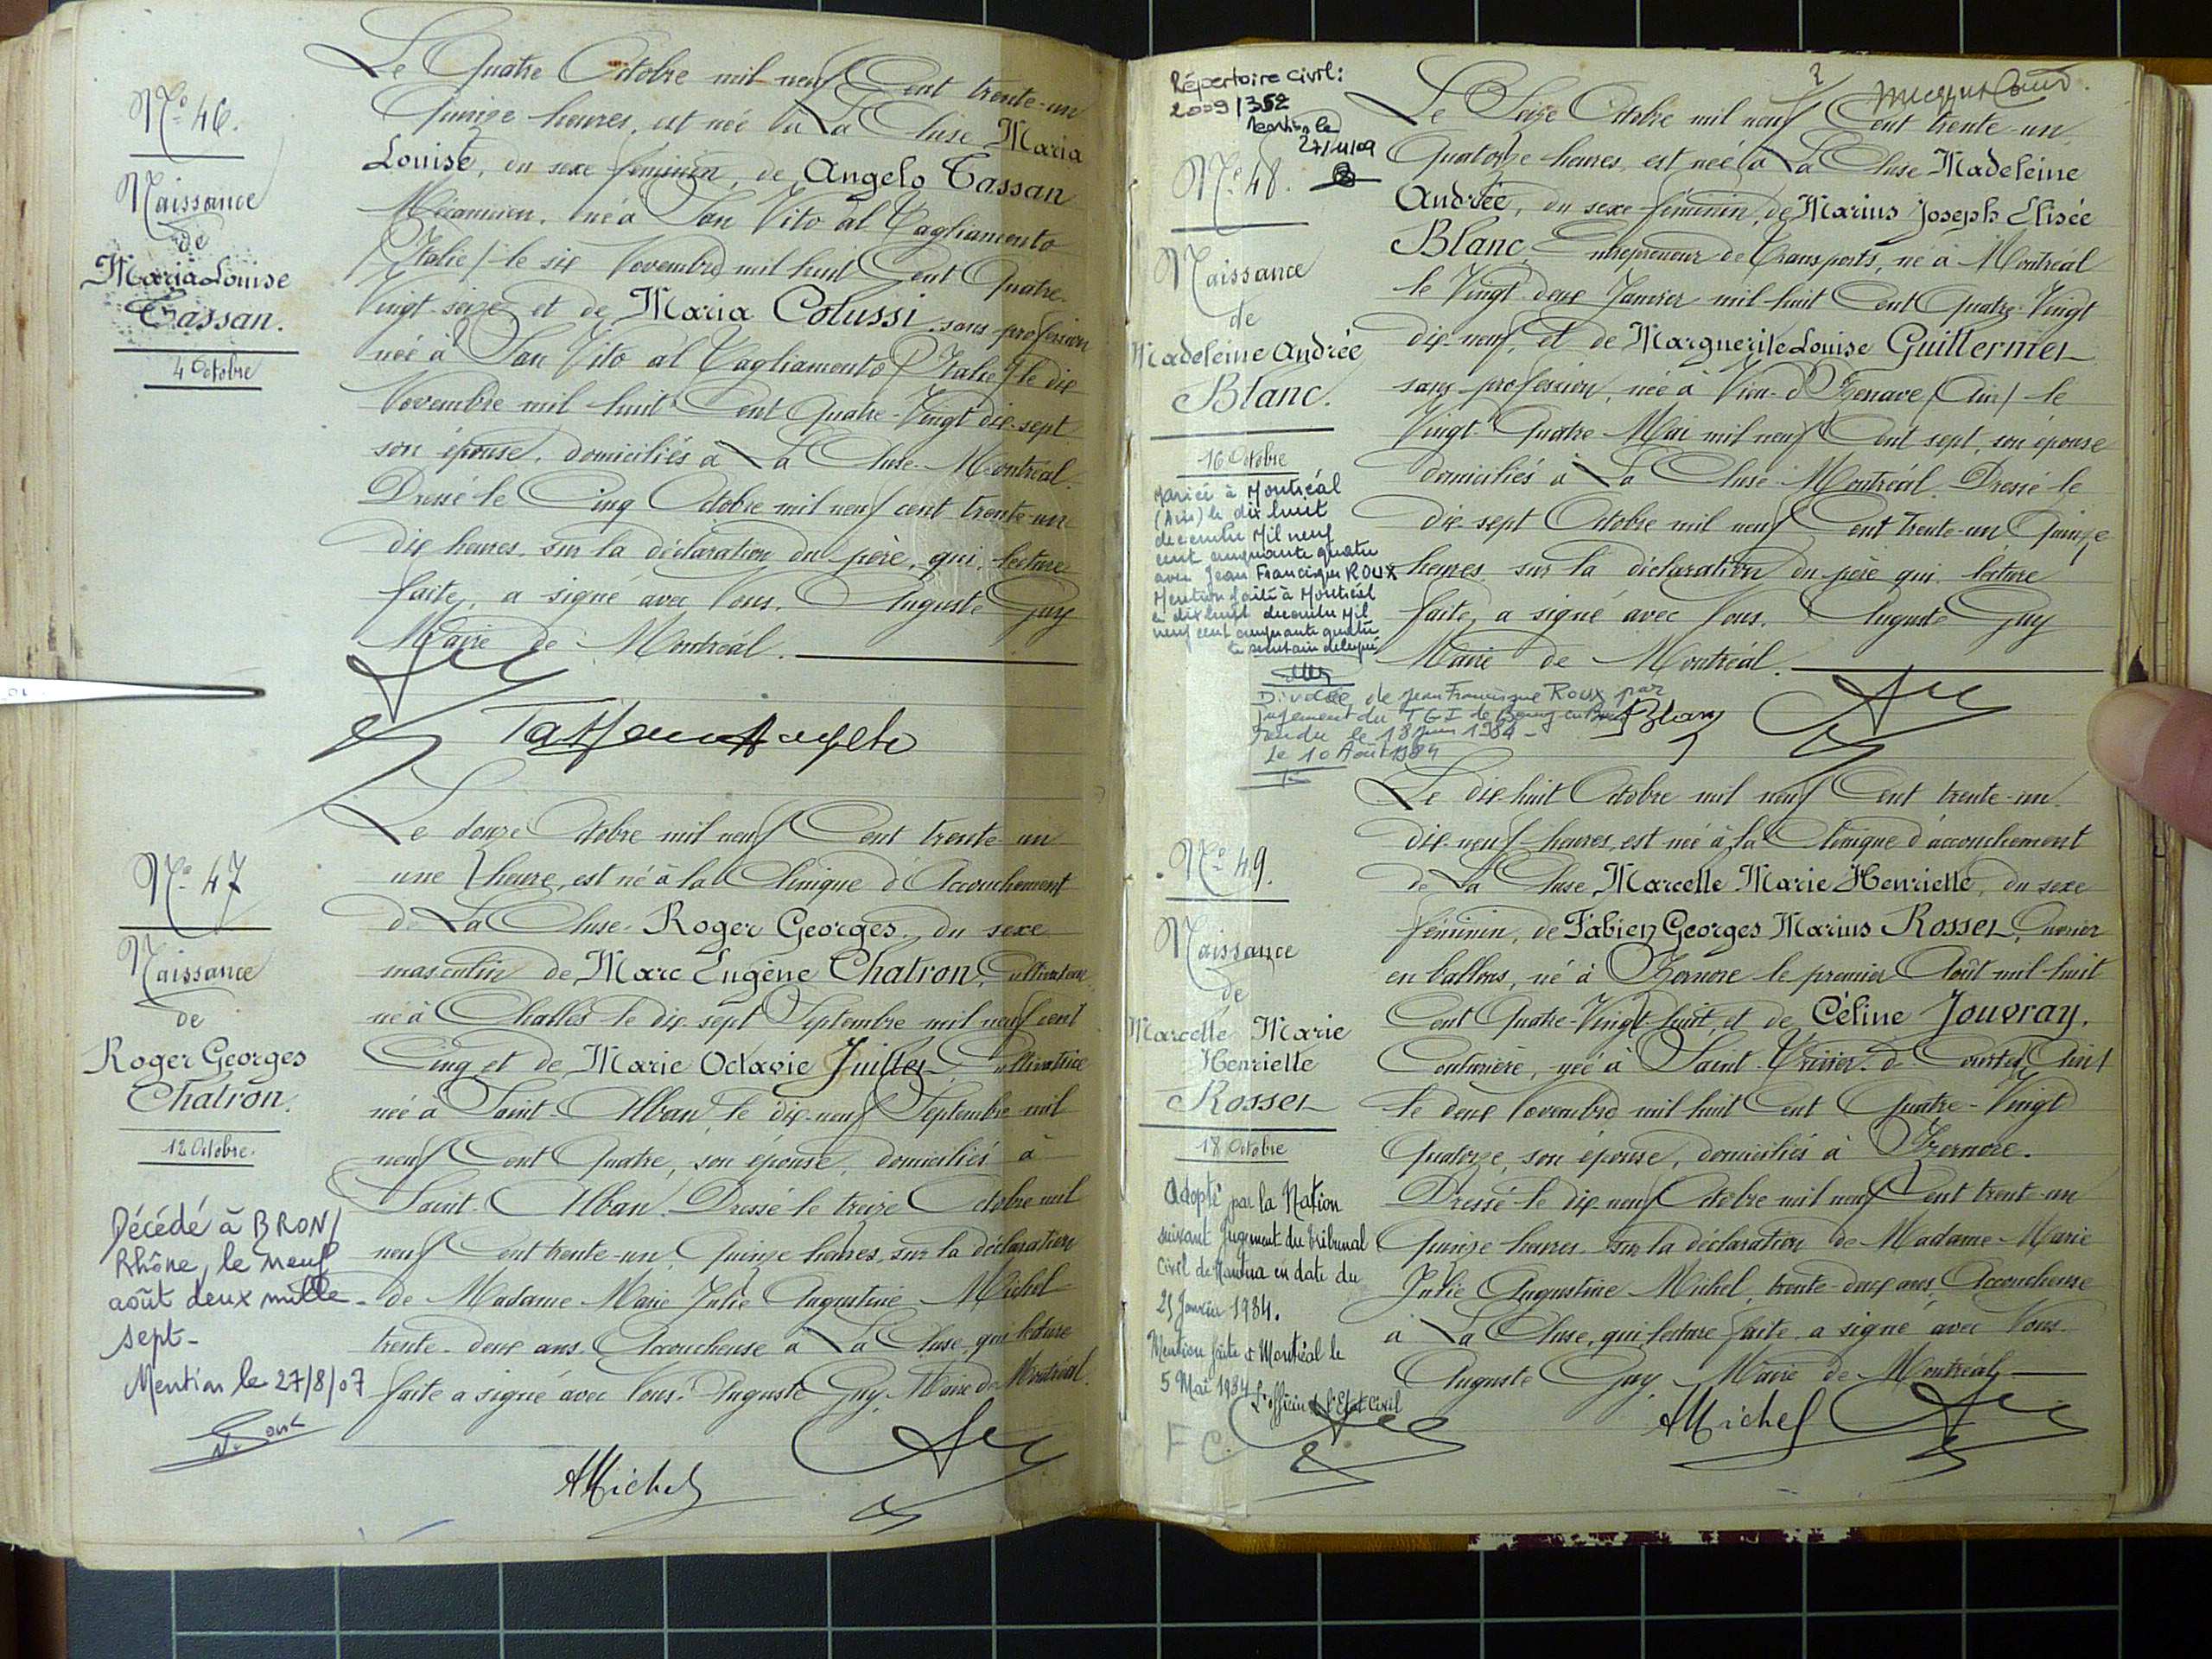 N° 46.
Naissance
de
Maria Louise
Tassan.
4 Octobre
Le Quatre Octobre mil neuf Cent trente-un
Quinze heures, est née à La Cluse Maria
Louise, du sexe féminin, de Angelo Tassan
Mécanicien, né à San Vito al Tagliamento
(Italie) le six Novembre mil huit Cent Quatre-
Vingt-seize et de Maria Colussi, sans profession
née à San Vito al Tagliamento (Italie) le dix
Novembre mil huit Cent Quatre-Vingt dix-sept
son épouse, domiciliés à La Cluse-Montréal.
Dressé le Cinq Octobre mil neuf cent trente-un
dix heures, sur la déclaration du père, qui, lecture
faite, a signé avec Nous, Auguste Guy
Maire de Montréal.
Tassan Angelo
N° 47
Naissance
de
Roger Georges
Chatron.
12 Octobre.
Décédé à BRON/
Rhône, le neuf
août deux mille
sept-
Mention le 27/8/07
Le douze Octobre mil neuf Cent trente-un
une heure, est né à la Clinique d'Accouchement
de La Cluse. Roger Georges, du sexe
masculin de Marc Eugène Chatron, Cultivateur,
né à Challes le dix sept Septembre mil neuf cent
Cinq et de Marie Octavie Juillet Cultivatrice
née à Saint-Alban, le dix-neuf Septembre mil
neuf Cent Quatre, son épouse, domiciliés à
Saint-Alban. Dressé le treize Octobre mil
neuf Cent trente-un, Quinze heures, sur la déclaration
de Madame Marie Julie Augustine Michel
trente-deux ans Accoucheuse à La Cluse, qui lecture
faite a signé avec Nous. Auguste Guy, Maire de Montréal.
AMichel
Répertoire civil:
2009/352
Mention le
27/11/09
N° 48.
Naissance
de
Madeleine Andrée
Blanc.
16 Octobre
Mariée à Montréal
(Ain) le dix huit
décembre Mil neuf
cent cinquante quatre
avec Jean Francisque ROUX
Mention faite à Montréal
le dix huit décembre Mil
neuf cent cinquante quatre
le secrétaire délégué
Divorcée de Jean Francisque Roux par
Jugement du TGI de Bourg en Bresse
rendu le 18 Juin 1984-
Le 10 Août 1984
Le Seize Octobre mil neuf Cent trente-un
Quatorze heures, est née à La Cluse Madeleine
Andrée, du sexe féminin, de Marius Joseph Elisée
Blanc, Entrepreneur de Transports, né à Montréal
le Vingt-deux Janvier mil huit Cent Quatre-Vingt
dix-neuf, et de Marguerite Louise Guillermet
sans profession, née à Vieu-d'Izenave (Ain) le
Vingt-Quatre Mai mil neuf Cent sept, son épouse
domiciliés à La Cluse-Montréal. Dressé le
dix-sept Octobre mil neuf Cent trente-un Quinze
heures, sur la déclaration du père qui, lecture
faite, a signé avec Nous, Auguste Guy
Maire de Montréal.
Blanc
N° 49.
Naissance
de
Marcelle Marie
Henriette
Rosset
18 Octobre
Adopté par la Nation
suivant Jugement du tribunal
Civil de Nantua en date du
25 Janvier 1934.
Mention faite à Montréal le
5 Mai 1934 L'officier de l'Etat Civil
F C.
Le dix-huit Octobre mil neuf Cent trente-un
dix-neuf heures, est née à la Clinique d'accouchement
de La Cluse, Marcelle Marie Henriette, du sexe
féminin, de Fabien Georges Marius Rosset, Ouvrier
en ballons, né à Izernore le premier Août mil huit
Cent Quatre-Vingt-huit, et de Céline Jouvray,
Couturière, née à Saint-Trivier-de-Courtes (Ain)
le deux Novembre mil huit Cent Quatre-Vingt
Quatorze, son épouse, domiciliés à Izernore.
Dressé le dix-neuf Octobre mil neuf Cent trent-un
Quinze heures, sur la déclaration de Madame Marie
Julie Augustine Michel, trente-deux ans, Accoucheuse
à La Cluse, qui, lecture faite, a signé avec Nous
Auguste Guy, Maire de Montréal
AMichel